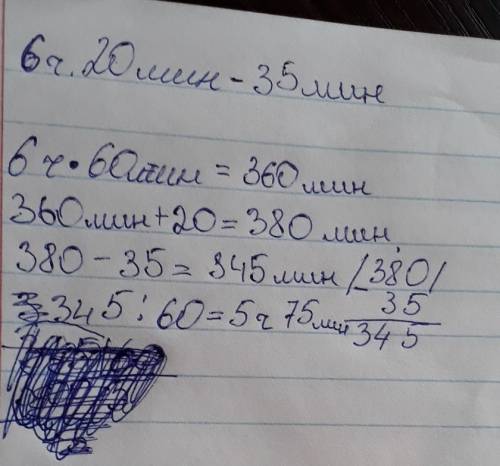 6 ч. 20 мин - 35 мин
6 ч · 60 мин = 360 мин
360 мин + 20 = 380 мин
380 - 35 = 345 мин
345 : 60 = 5 ч 75 мин
380
35
345